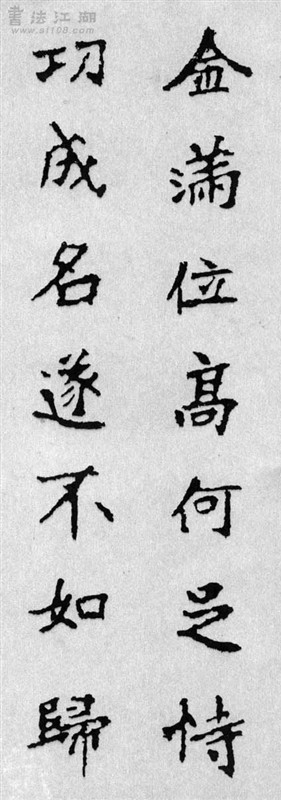 金滿位高何足恃
功成名遂不如歸
書法江湖
www.sf108.com